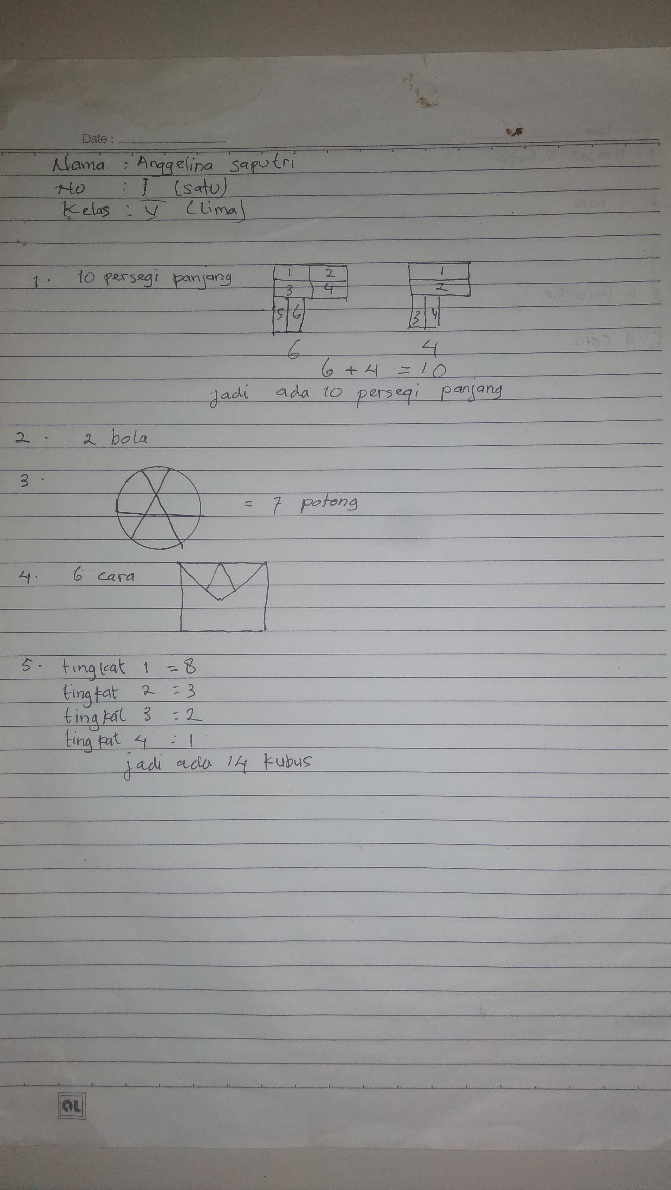 Date :
Nama : Anggelina saputri
No : I (satu)
Kelas : V (lima)
1. 10 persegi panjang
1 2
3 4
5 6
6
1
2
3 4
4
6 + 4 = 10
jadi ada 10 persegi panjang
2. 2 bola
3. = 7 potong
4. 6 cara
5. tingkat 1 = 8
tingkat 2 = 3
tingkat 3 = 2
tingkat 4 = 1
jadi ada 14 kubus
OL